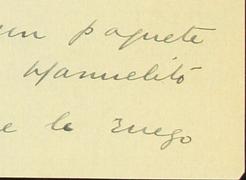 un paquete
Manuelitó
e le ruego